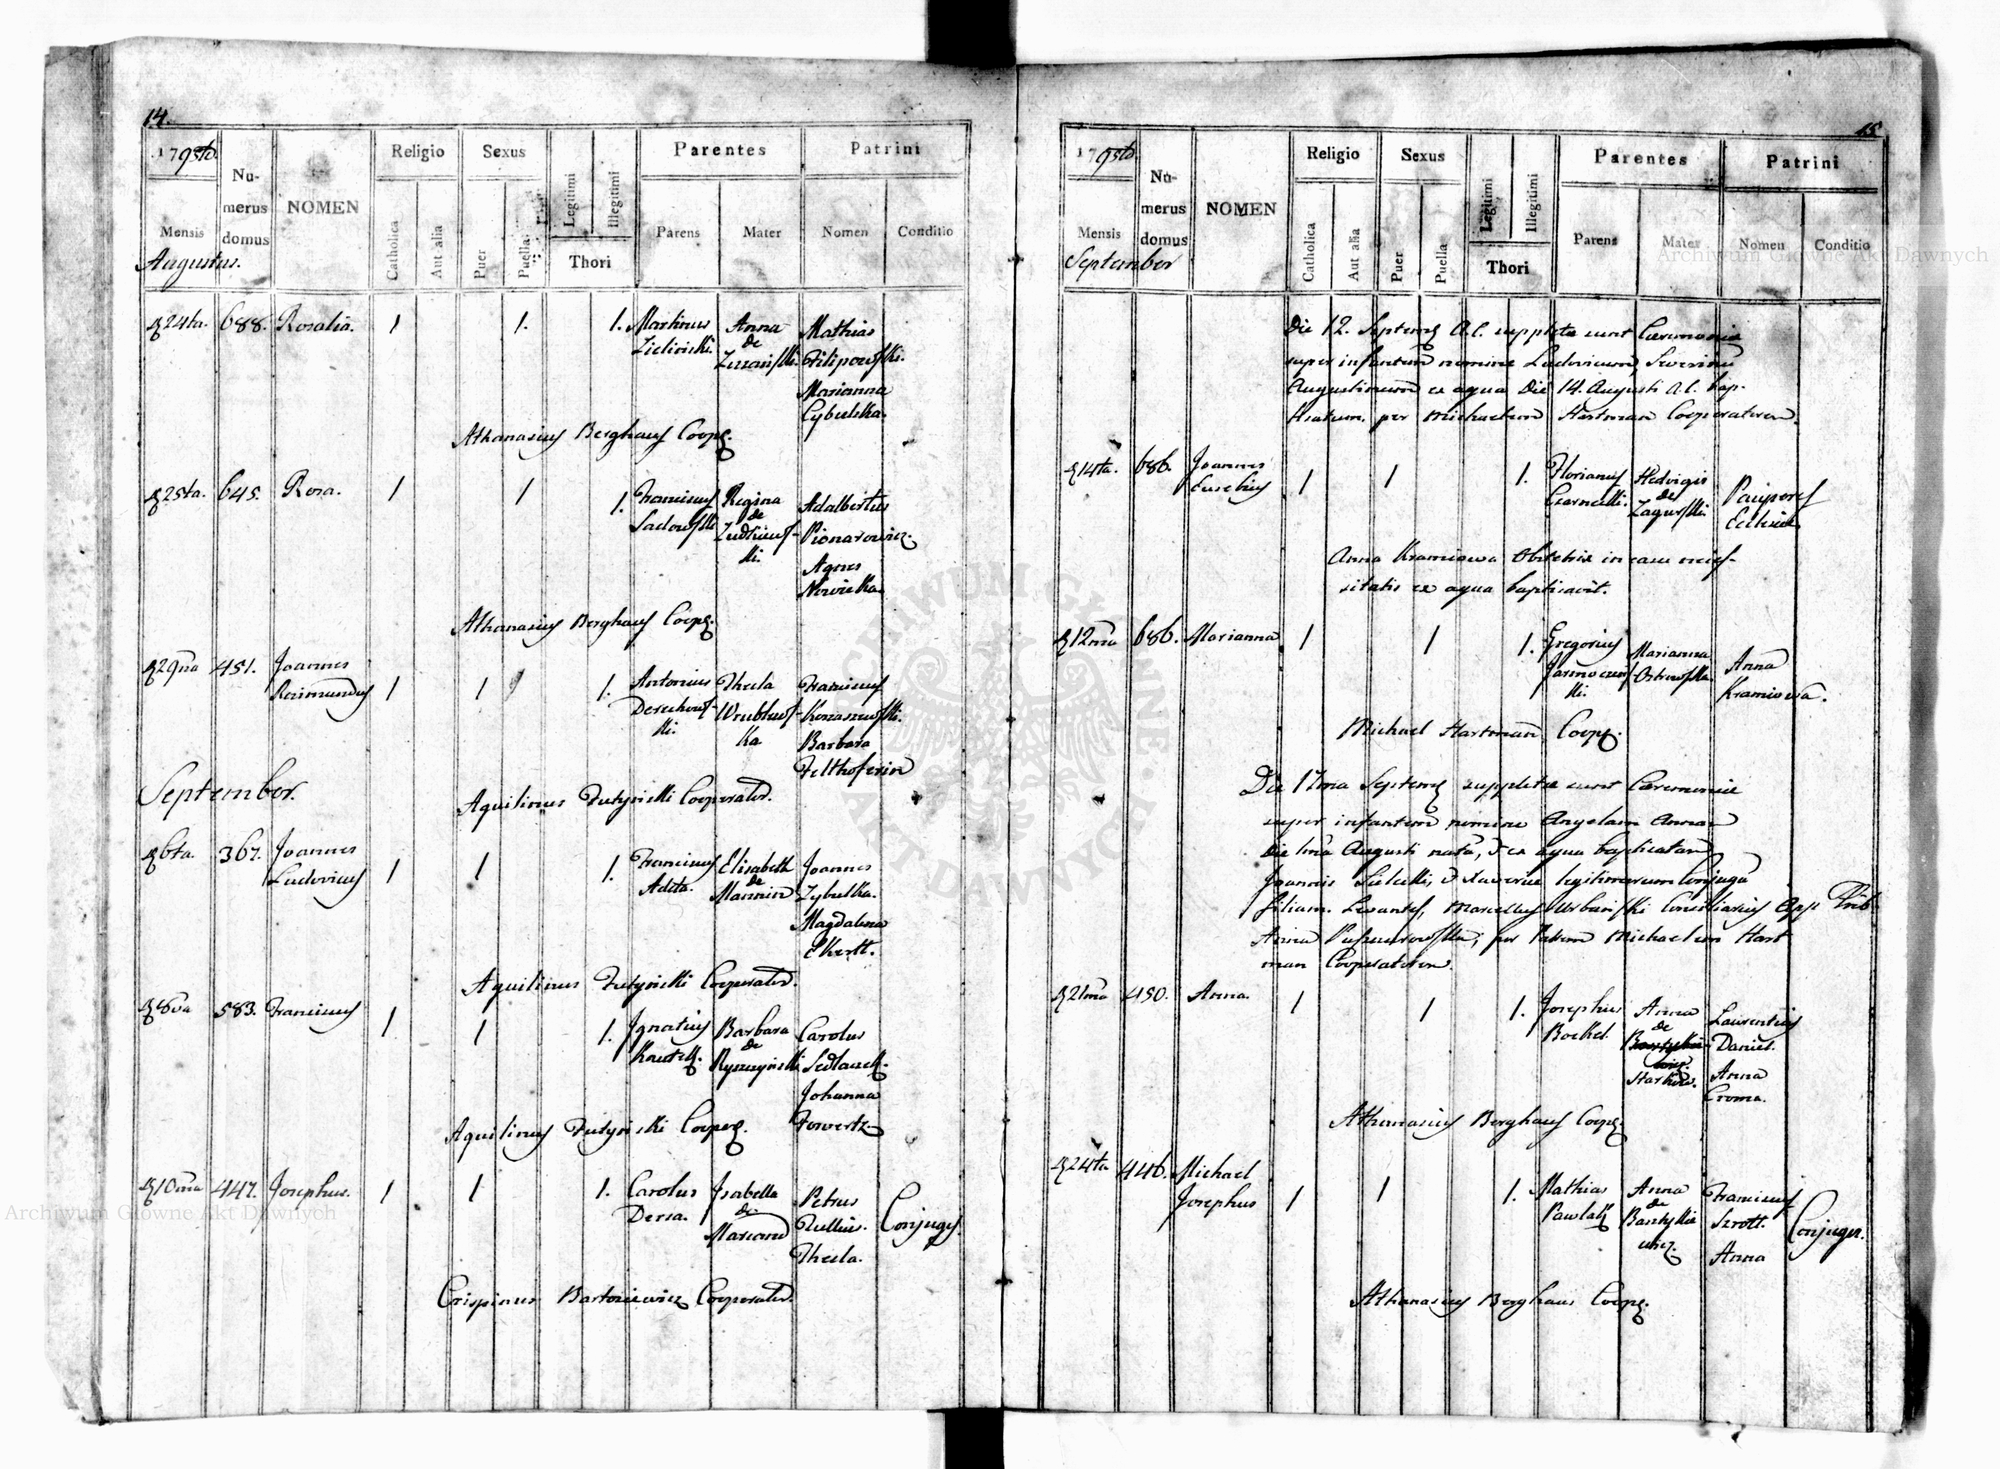 14.
1795to
Mensis
Augustus.
Numerus domus
NOMEN
Religio
Catholica
Aut alia
Sexus
Puer
Puella
Legitimi
Illegitimi
Thori
Parentes
Parens
Mater
Patrini
Nomen
Conditio
24ta. 688. Rosalia. 1 1. 1. Martinus Anna Mathias
Zielinski. de Filipowski.
Marianna
Cybulska.
Athanasius Berghaus Coop.
25ta. 645. Rosa. 1 1 1. Franciscus Regina Adalbertus
Sadowski de Pionarowicz.
ki. Agnes
Nowicka.
Athanasius Berghaus Coop.
29na 451. Joannes
Raimundus 1 1 1. Antonius Thecla Franciscus
Wrublewska
Barbara
Felthoferin
September.
Aquilinus Dutynski Cooperator.
6ta. 367. Joannes
Ludovicus 1 1 1. Franciscus Elisabeth Joannes
Adita. de Zybulka.
Magdalena
Ekertt.
Aquilinus Dutynski Cooperator.
8va 583. Franciscus 1 1 1. Ignatius Barbara Carolus
de
Ryszczynski
Johanna
Aquilinus Dutynski Cooper.
10ma 447. Josephus. 1 1 1. Carolus Isabella Petrus
Dersa. de Conjuges.
Thecla.
Crispinus Cooperator.
15
1795to
Mensis
September
Numerus domus
NOMEN
Religio
Catholica
Aut alia
Sexus
Puer
Puella
Legitimi
Illegitimi
Thori
Parentes
Parens
Mater
Patrini
Nomen
Conditio
Die 12. Septemb A.c. suppletae sunt Caeremoniae
super infantem nomine Ludovicum, Severinum
Augustinum ex aqua Die 14. Augusti A.c. bap-
tisatum. per Michaelem Hartman Cooperatorem.
14ta. 686. Joannes
Eusebius 1 1 1. Florianus Hedvigis
Czarnecki. de Pauperes
Zagurski. Ecclesiae
Anna Kramiowa Obstetrix in casu neces-
sitatis ex aqua baptisavit.
12ma 686. Marianna 1 1 1. Gregorius Marianna Anna
Ostrowska Kramiowa.
ki.
Michael Hartman Coop.
Die 17ma Septemb suppletae sunt Caeremoniae
super infantem nomine Angelam Annam
Die 1ma Augusti natam, & ex aqua baptisatam
Joannis Sielecki, & Xaveriae legitimorum Conjugum
filiam. Levantes, Marcellus Urbański Consiliarius App: Trib
Anna per Patrem Michaelem Hart
man Cooperatorem.
21ma 450. Anna. 1 1 1. Josephus Anna Laurentius
Boekel. de Daniel.
Anna
Croma.
Athanasius Berghaus Coop.
24ta 446. Michael
Josephus 1 1 1. Mathias Anna Franciscus
Pawlak de Szrott. Conjuges.
Anna
Athanasius Berghaus Coop.
Archiwum Główne Akt Dawnych
Archiwum Główne Akt Dawnych
ARCHIWUM GŁÓWNE AKT DAWNYCH